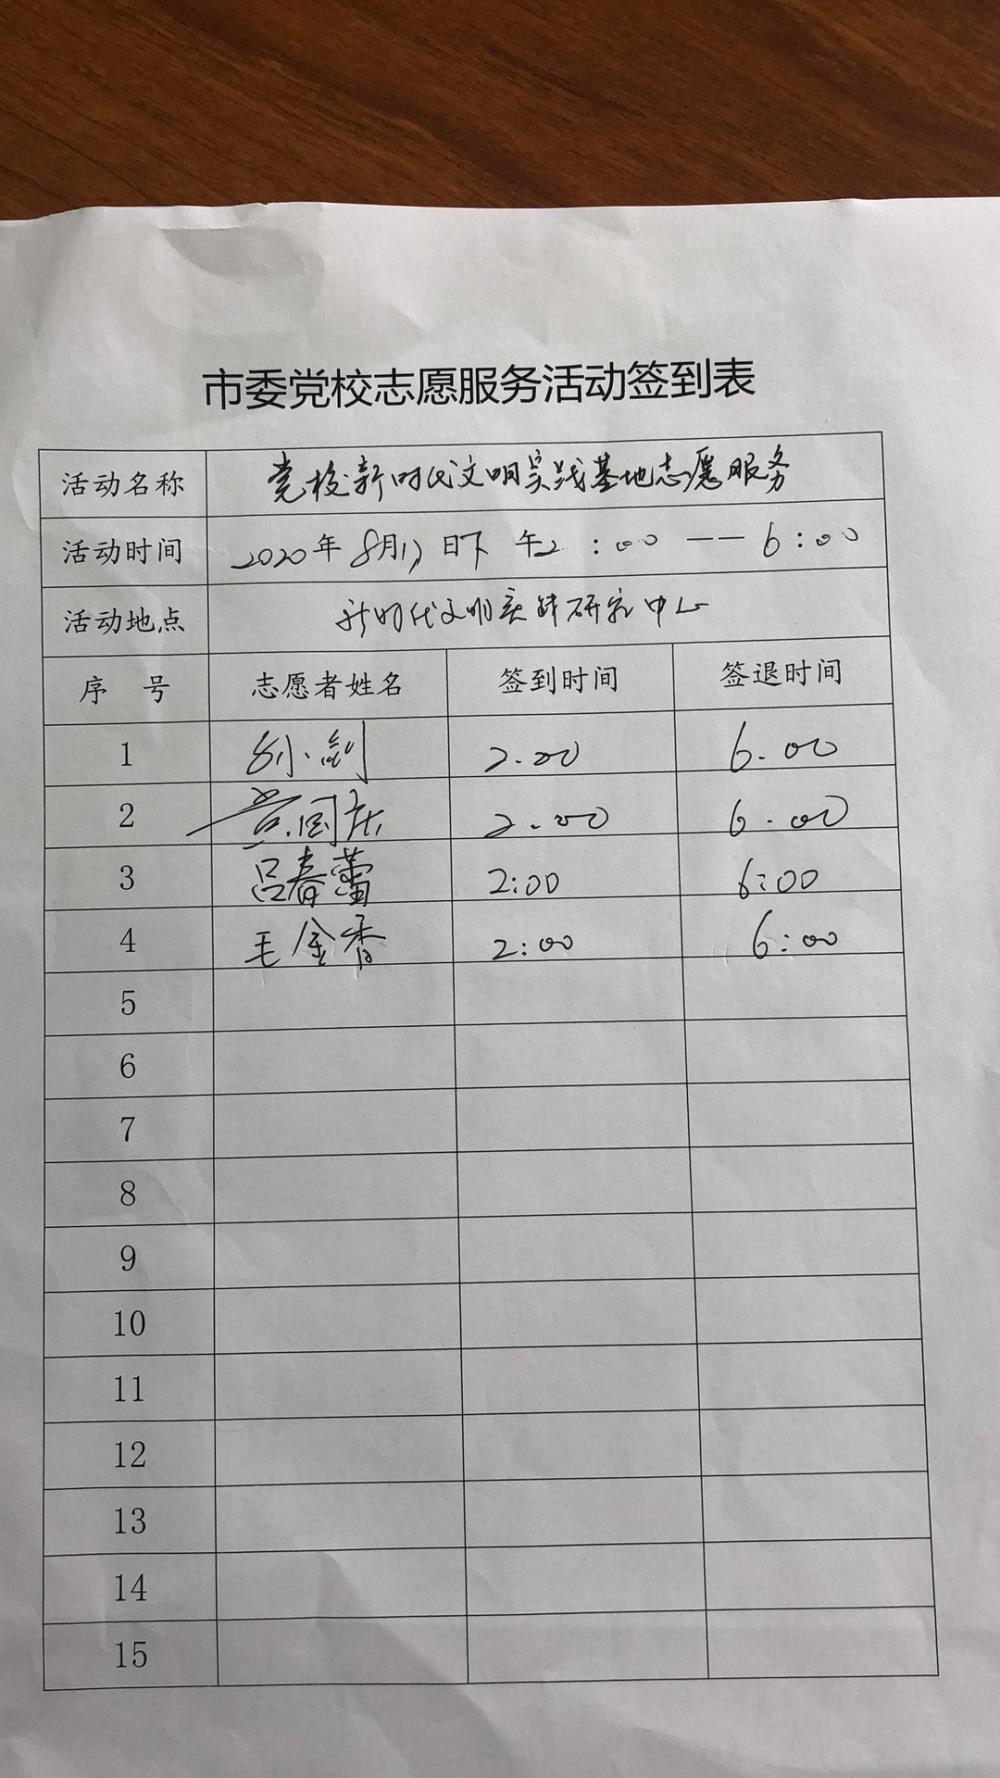 市委党校志愿服务活动签到表
活动名称 党校新时代文明实践基地志愿服务
活动时间 2020年8月17日下午2:00——6:00
活动地点 新时代文明实践研究中心
序号 志愿者姓名 签到时间 签退时间
1 孙剑 2.00 6.00
2 黄国庆 2.00 6.00
3 吕春蕾 2:00 6:00
4 毛金香 2:00 6:00
5
6
7
8
9
10
11
12
13
14
15